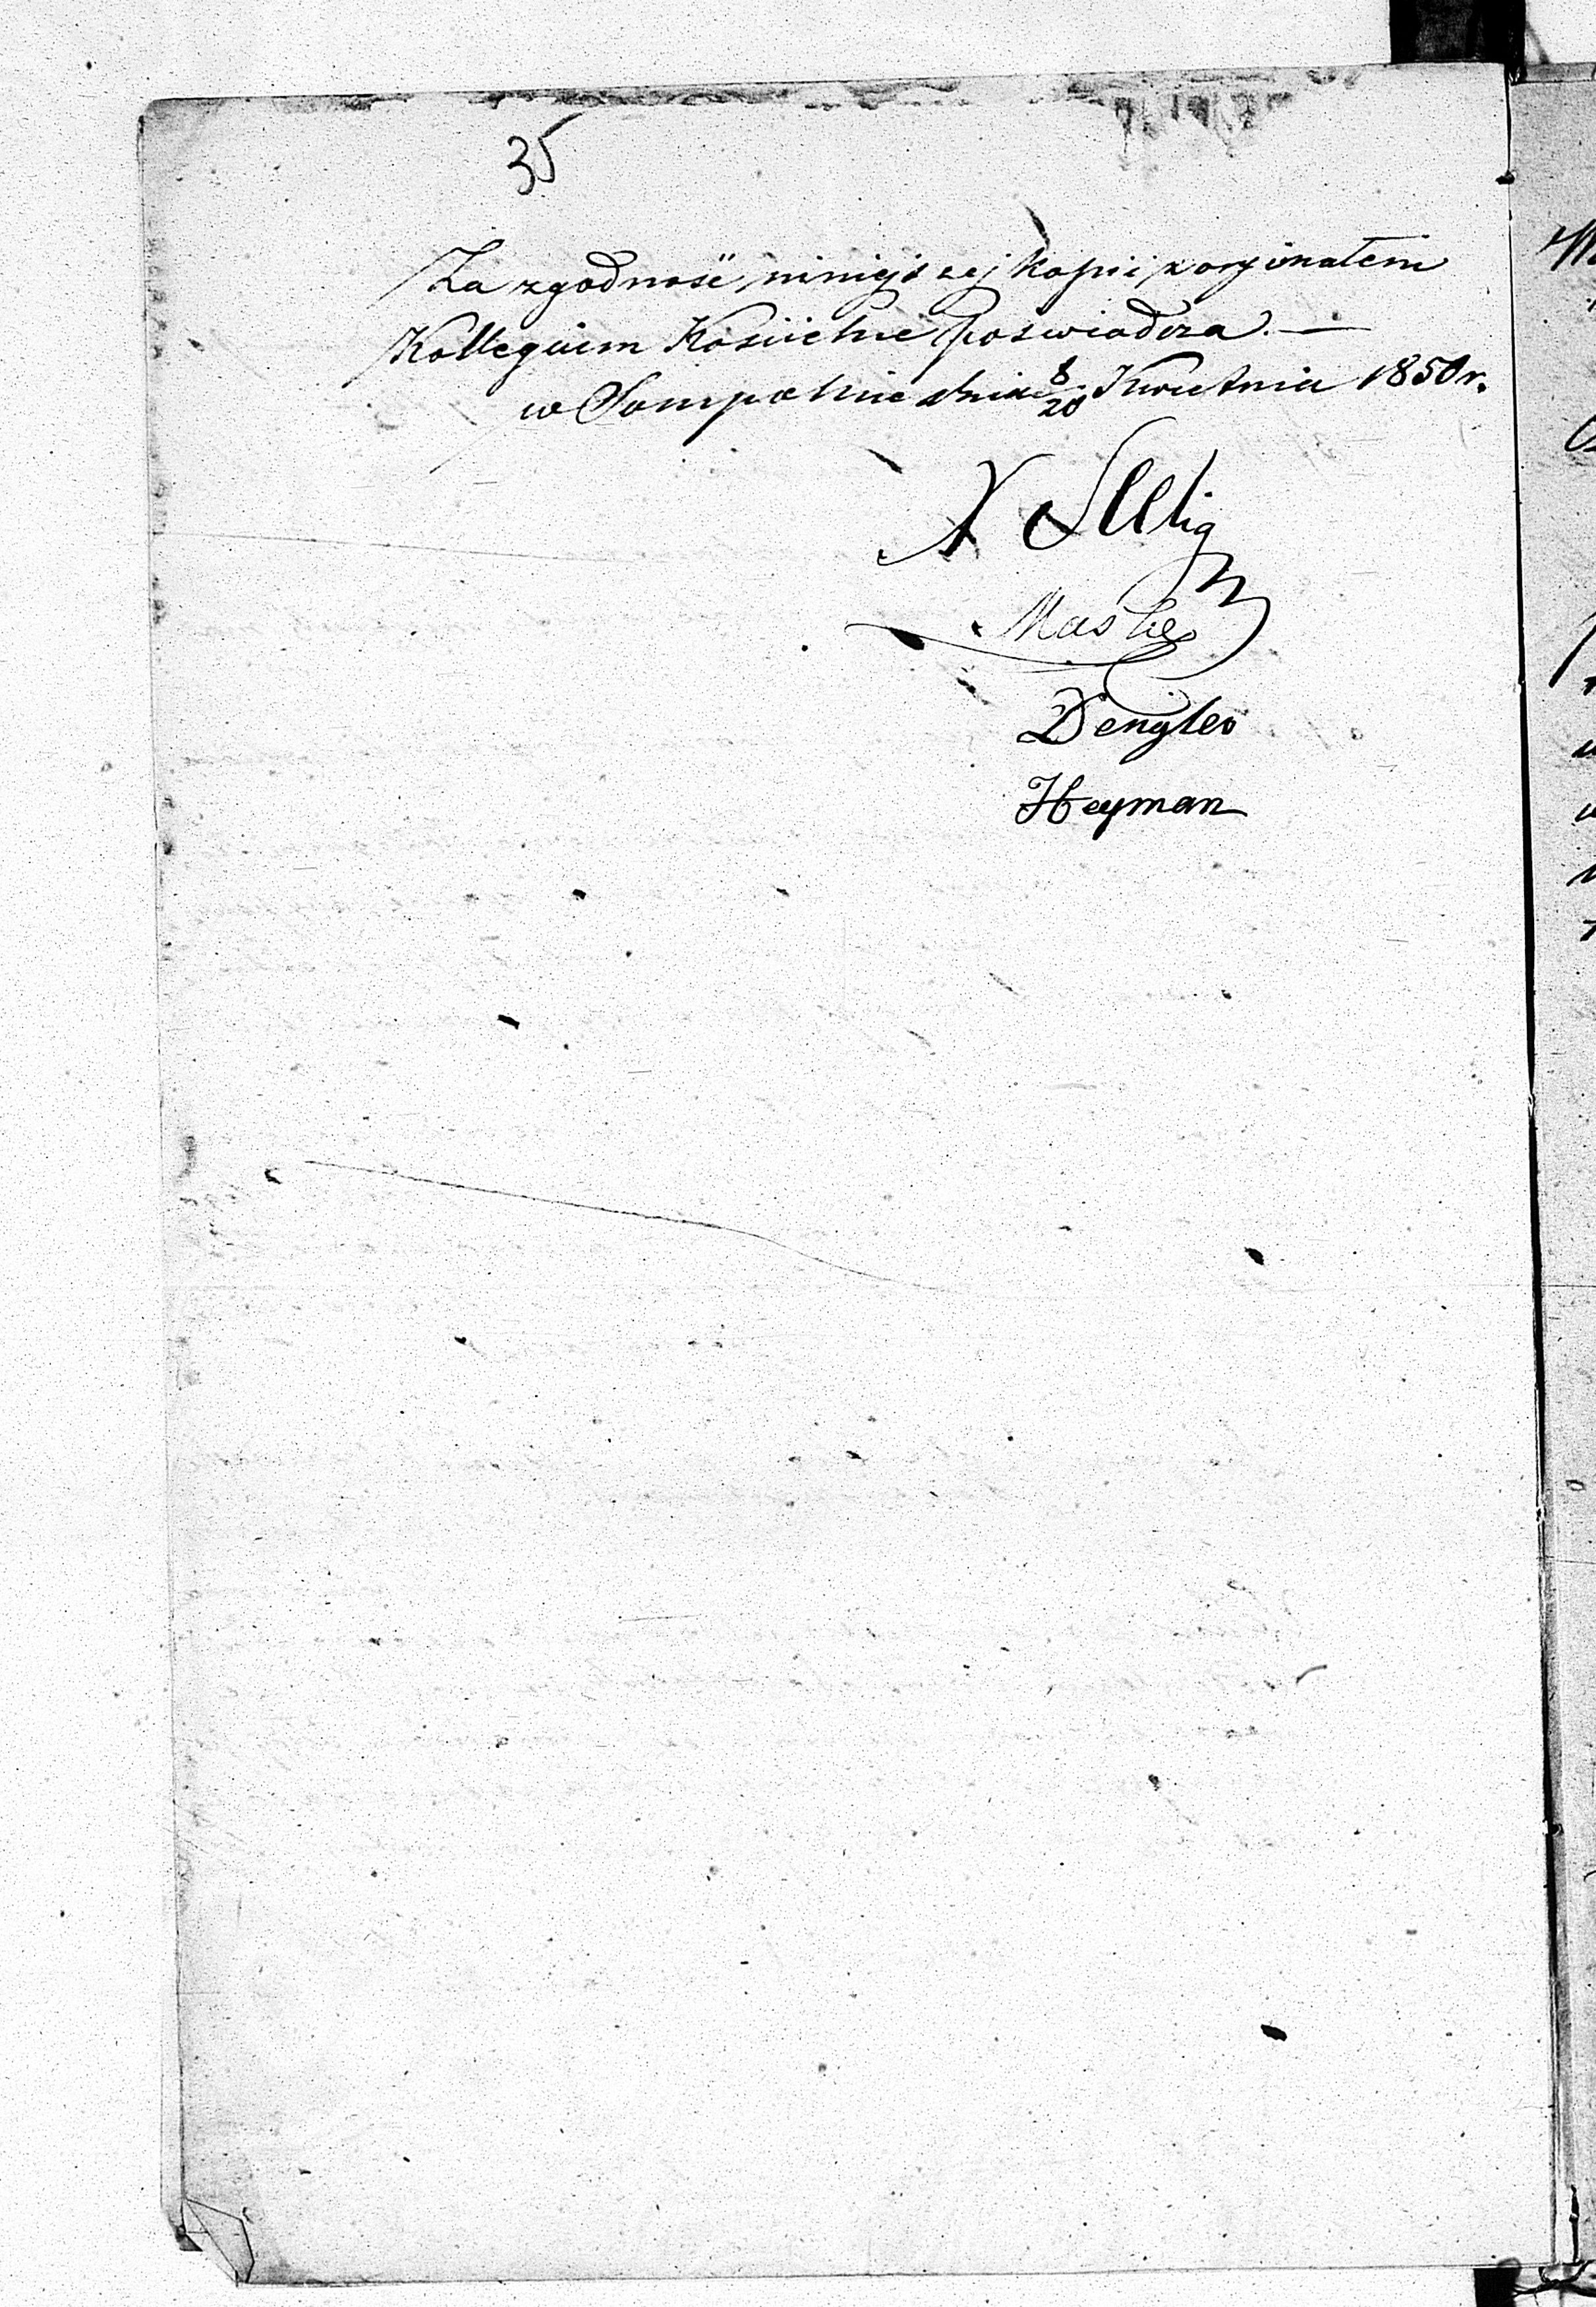 35
Za zgodność niniejszej kopii z oryginałem
Kollegium Kościelne poświadcza. —
w Sompolnie dnia 8/20 Kwietnia 1850 r.
Maske
Dengler
Heyman